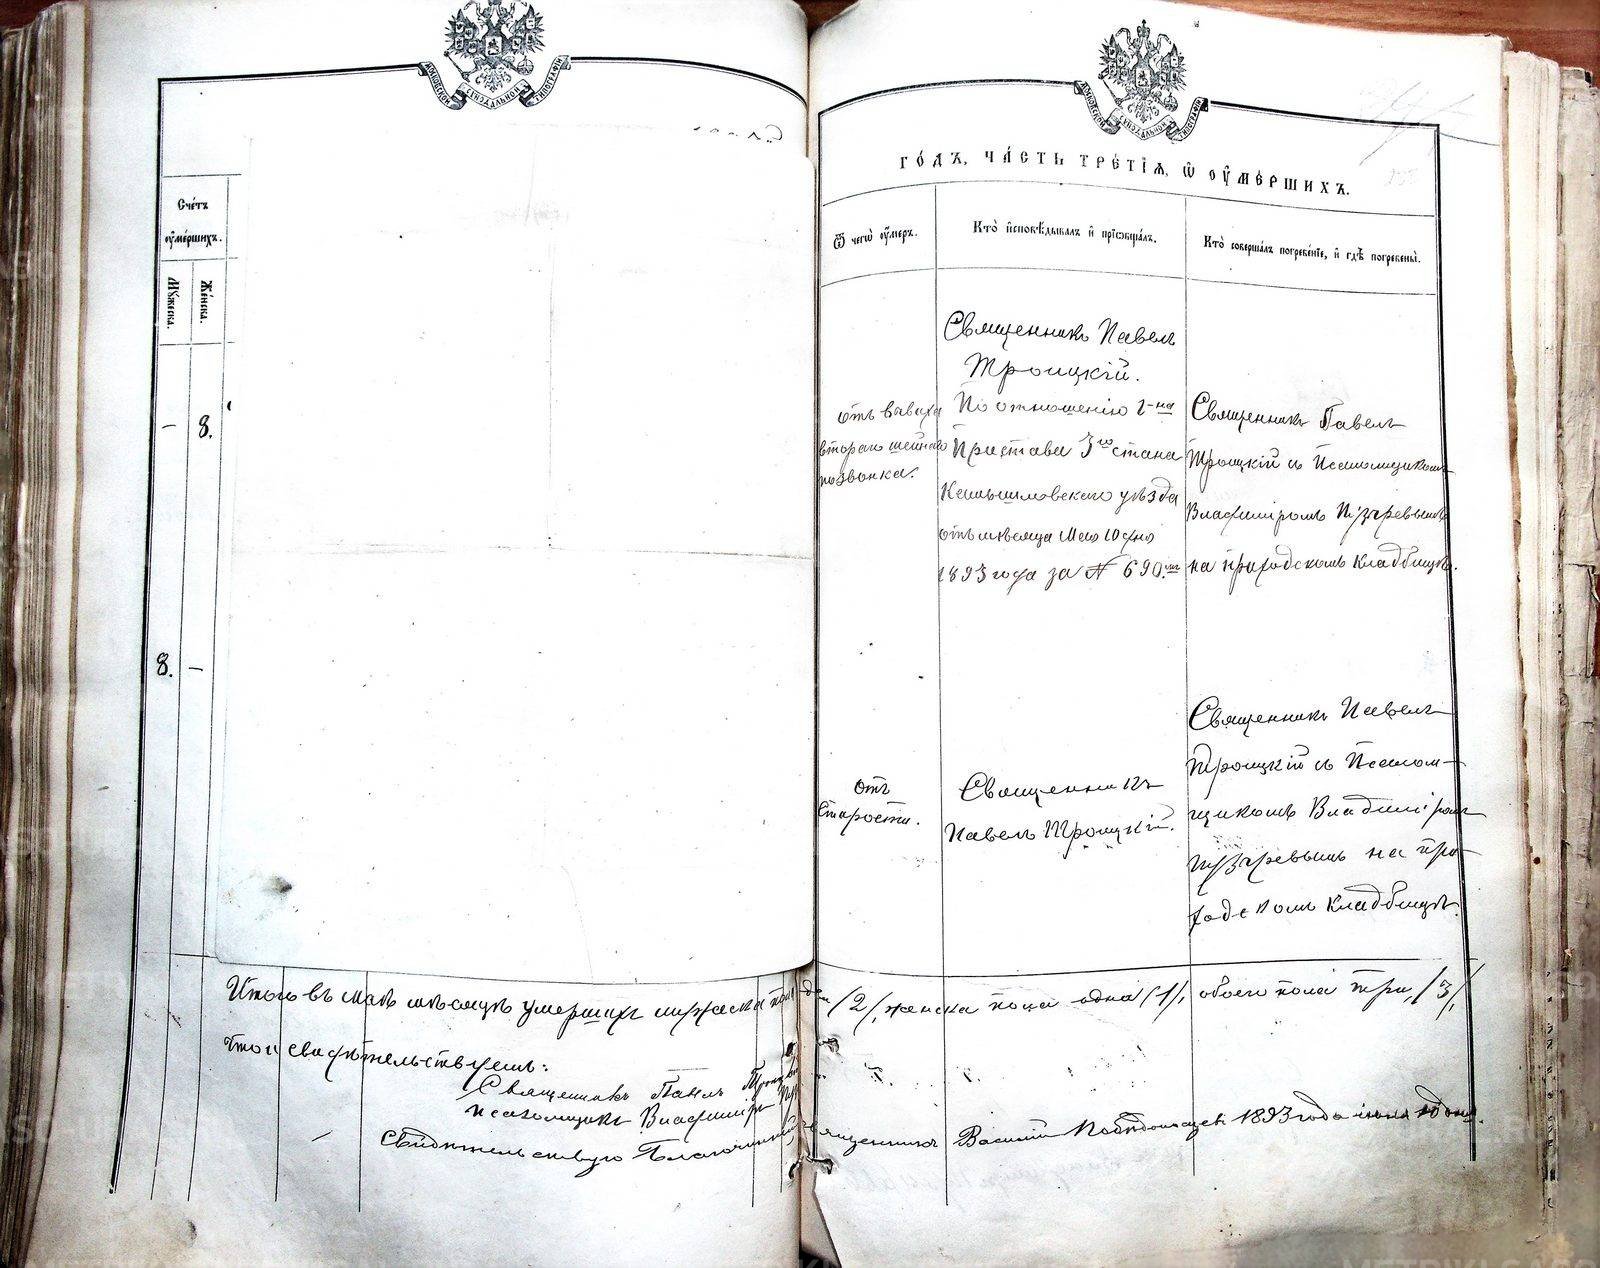 МОСКОВСКОЙ СѴНОДАЛЬНОЙ ТИПОГРАФІИ
Счетъ
оумершихъ.
Мужеска.
Женска.
— 8.
8. —
МОСКОВСКОЙ СѴНОДАЛЬНОЙ ТИПОГРАФІИ
ГОДЪ, ЧАСТЬ ТРЕТІѦ, Ѿ ОУМЕРШИХЪ.
Ѿ чегѡ оумеръ.
Кто исповѣдывалъ и пріѡбщалъ.
Кто совершалъ погребеніе, и гдѣ погребены.
отъ вывиха
втораго шейнаго
позвонка.
Священникъ Павелъ
Троицкій.
По отношенію Г-на
Пристава 3го стана
Камышловскаго уѣзда
отъ мѣсяца Мая 10 дня
1893 года за № 690.мъ
Священникъ Павелъ
Троицкій съ Псаломщикомъ
Владиміромъ
на приходскомъ кладбищѣ.
отъ
старости.
Священникъ
Павелъ Троицкій.
Священникъ Павелъ
Троицкій съ Псалом-
щикомъ Владиміромъ
на при-
ходскомъ кладбищѣ.
Итого въ маѣ мѣсяцѣ умершихъ мужеска пола два /2/, женска пола одна /1/, обоего пола три /3/,
что и свидѣтельствуемъ:
Священникъ Павелъ Троицкій
Псаломщикъ Владиміръ
Свидѣтельствую Благочинный, священникъ Василій 1893 года іюня дня.